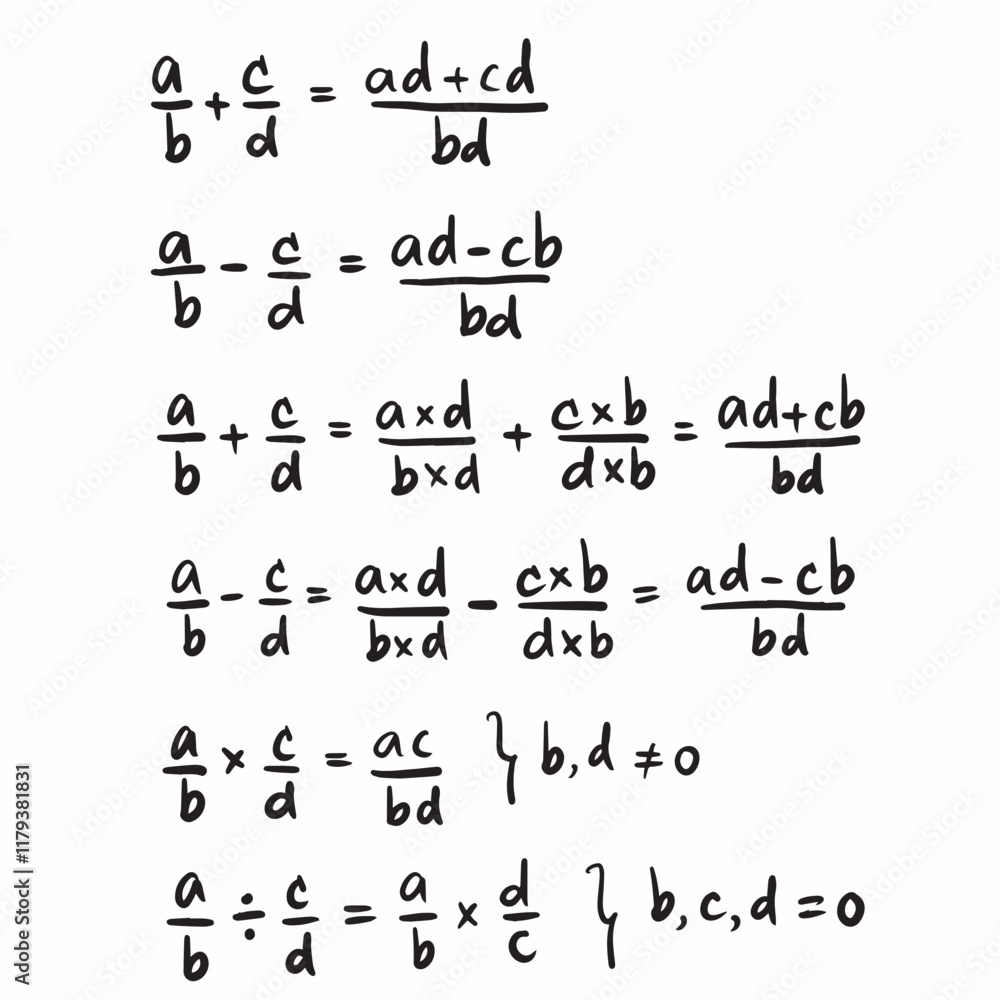 a/b + c/d = ad+cd/bd
a/b - c/d = ad-cb/bd
a/b + c/d = a×d/b×d + c×b/d×b = ad+cb/bd
a/b - c/d = a×d/b×d - c×b/d×b = ad-cb/bd
a/b × c/d = ac/bd } b,d ≠ 0
a/b ÷ c/d = a/b × d/c } b,c,d = 0
Adobe Stock | #1179381831